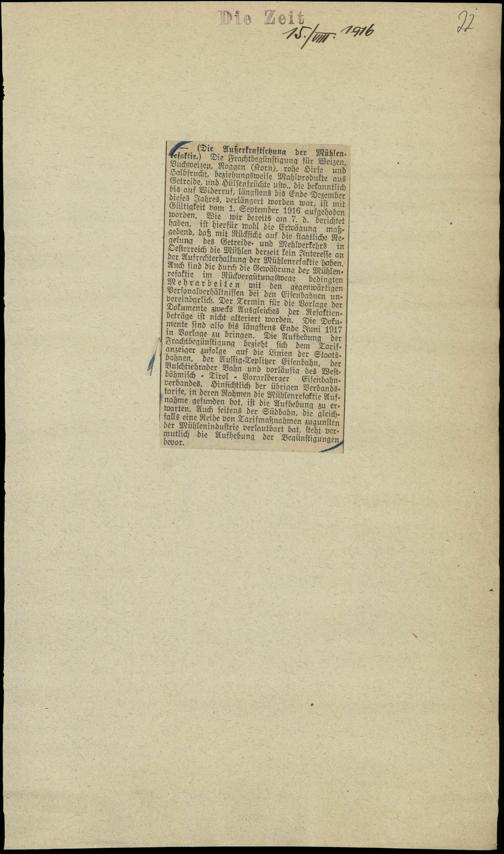 Die Zeit
15./VIII. 1916
22
— (Die Außerkraftsetzung der Mühlen-
refaktie.) Die Frachtbegünstigung für Weizen,
Buchweizen, Roggen (Korn), rohe Hirse und
Halbfrucht, beziehungsweise Mahlprodukte aus
Getreide, und Hülsenfrüchte usw., die bekanntlich
bis auf Widerruf, längstens bis Ende Dezember
dieses Jahres, verlängert worden war, ist mit
Gültigkeit vom 1. September 1916 aufgehoben
worden. Wie wir bereits am 7. d. berichtet
haben, ist hierfür wohl die Erwägung maß-
gebend, daß mit Rücksicht auf die staatliche Re-
gelung des Getreide- und Mehlverkehrs in
Oesterreich die Mühlen derzeit kein Interesse an
der Aufrechterhaltung der Mühlenrefaktie haben.
Auch sind die durch die Gewährung der Mühlen-
refaktie im Rückvergütungswege bedingten
Mehrarbeiten mit den gegenwärtigen
Personalverhältnissen bei den Eisenbahnen un-
vereinbarlich. Der Termin für die Vorlage der
Dokumente zwecks Ausgleiches der Refaktien-
beträge ist nicht alteriert worden. Die Doku-
mente sind also bis längstens Ende Juni 1917
in Vorlage zu bringen. Die Aufhebung der
Frachtbegünstigung bezieht sich dem Tarif-
anzeiger zufolge auf die Linien der Staats-
bahnen, der Aussig-Teplitzer Eisenbahn, der
Buschtiehrader Bahn und vorläufig des West-
böhmisch - Tirol - Vorarlberger Eisenbahn-
verbandes. Hinsichtlich der übrigen Verbands-
tarife, in deren Rahmen die Mühlenrefaktie Auf-
nahme gefunden hat, ist die Aufhebung zu er-
warten. Auch seitens der Südbahn, die gleich-
falls eine Reihe von Tarifmaßnahmen zugunsten
der Mühlenindustrie verlautbart hat, steht ver-
mutlich die Aufhebung der Begünstigungen
bevor.